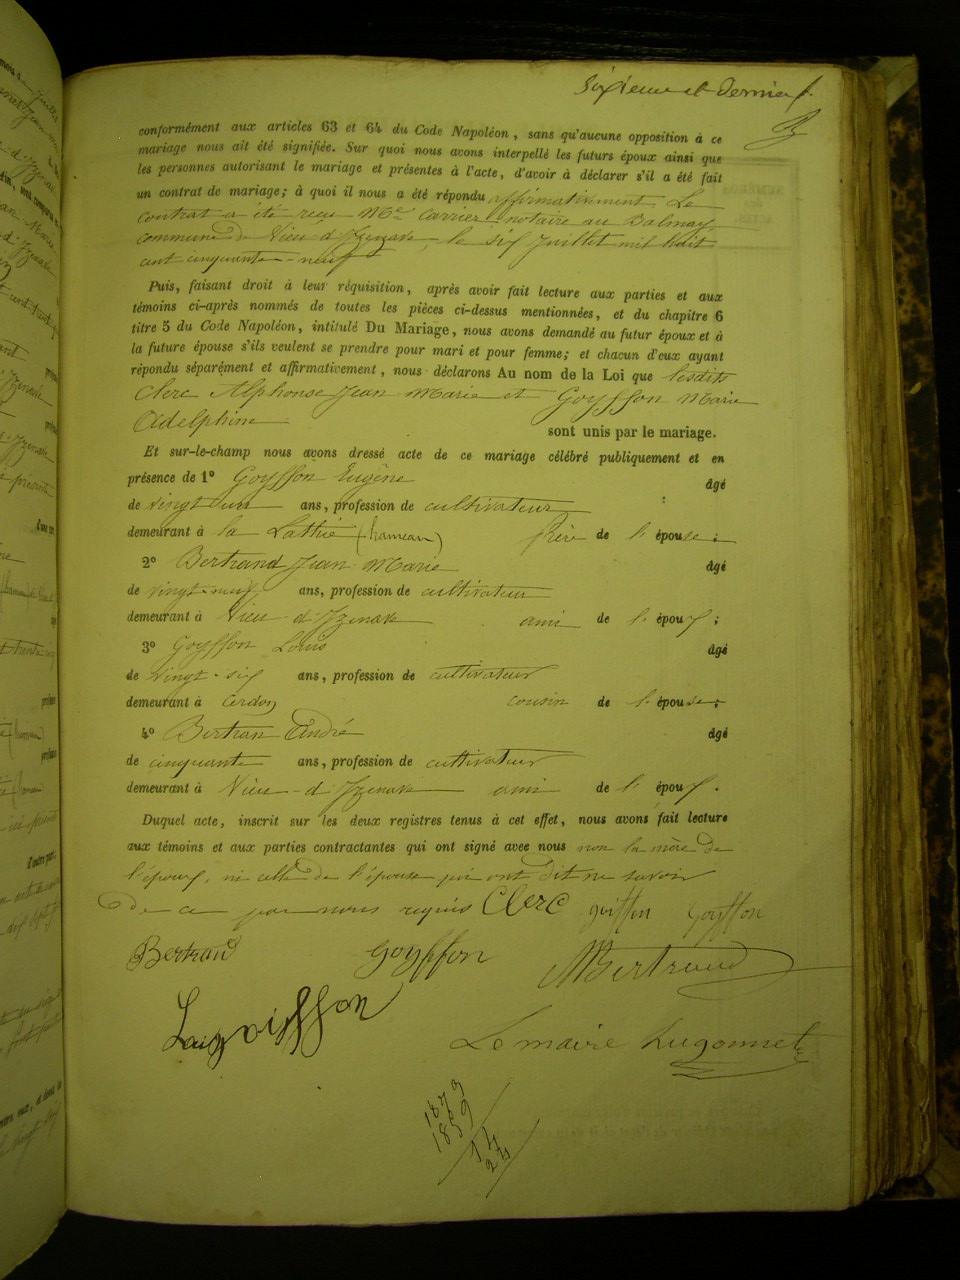 sixieme et dernier f.
conformément aux articles 63 et 64 du Code Napoléon, sans qu'aucune opposition à ce
mariage nous ait été signifiée. Sur quoi nous avons interpellé les futurs époux ainsi que
les personnes autorisant le mariage et présentes à l'acte, d'avoir à déclarer s'il a été fait
un contrat de mariage; à quoi il nous a été répondu affirmativement. Le
contrat a été reçu Me Carrier notaire au Balmay,
commune de Vieu d'Izenave, le six juillet mil huit
cent cinquante-neuf
Puis, faisant droit à leur réquisition, après avoir fait lecture aux parties et aux
témoins ci-après nommés de toutes les pièces ci-dessus mentionnées, et du chapitre 6
titre 5 du Code Napoléon, intitulé Du Mariage, nous avons demandé au futur époux et à
la future épouse s'ils veulent se prendre pour mari et pour femme; et chacun d'eux ayant
répondu séparément et affirmativement, nous déclarons Au nom de la Loi que lesdits
Clerc Alphonse Jean Marie et Goyffon Marie
Adelphine
sont unis par le mariage.
Et sur-le-champ nous avons dressé acte de ce mariage célébré publiquement et en
présence de 1º Goyffon Eugène âgé
de vingt un ans, profession de cultivateur
demeurant à la Lathie (hameau) frère de l'épouse;
2º Bertrand Jean Marie âgé
de vingt-neuf ans, profession de cultivateur
demeurant à Vieu d'Izenave ami de l'époux;
3º Goyffon Louis âgé
de vingt-six ans, profession de cultivateur
demeurant à Cerdon cousin de l'épouse;
4º Bertran André âgé
de cinquante ans, profession de cultivateur
demeurant à Vieu-d'Izenave ami de l'époux.
Duquel acte, inscrit sur les deux registres tenus à cet effet, nous avons fait lecture
aux témoins et aux parties contractantes qui ont signé avec nous non la mère de
l'époux, ni celle de l'épouse qui ont dit ne savoir
de ce par nous requis Clerc goiffon Goyffon
Bertrand Goyffon Bertrand
goiffon
Le maire Hugonnet
1873
1859
14
24